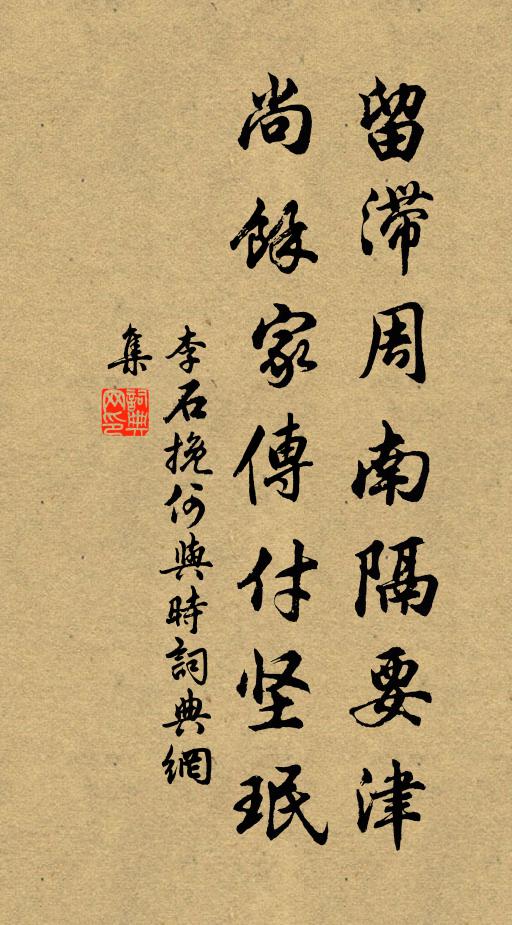 留滞周南隔要津
尚餘家傳付坚珉
李石挽何與時詞典網
集
詞典網印